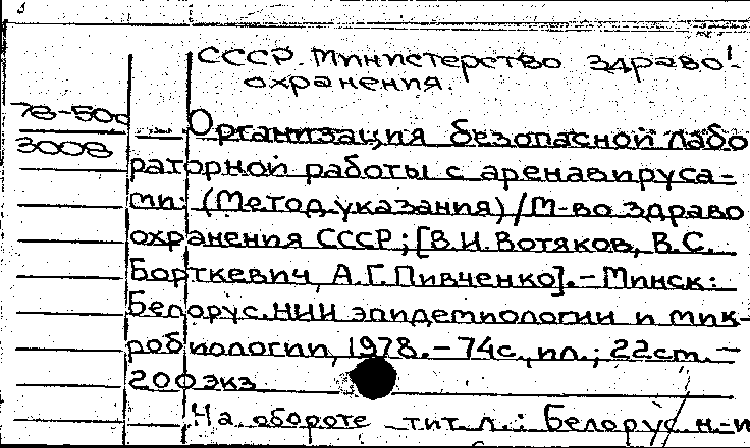 СССР. Министерство здраво-
охранения.
78-500
3008
Организация безопасной лабо
раторной работы с аренавируса-
ми: (Метод.указания)/М-во здраво
охранения СССР; [В.И.Вотяков, В.С.
Борткевич, А.Г.Пивченко].-Минск:
Белорус.НИИ эпидемиологии и мик-
робиологии, 1978.-74с., ил.; 22см.-
200экз
На обороте тит.л.: Белорус н.-и